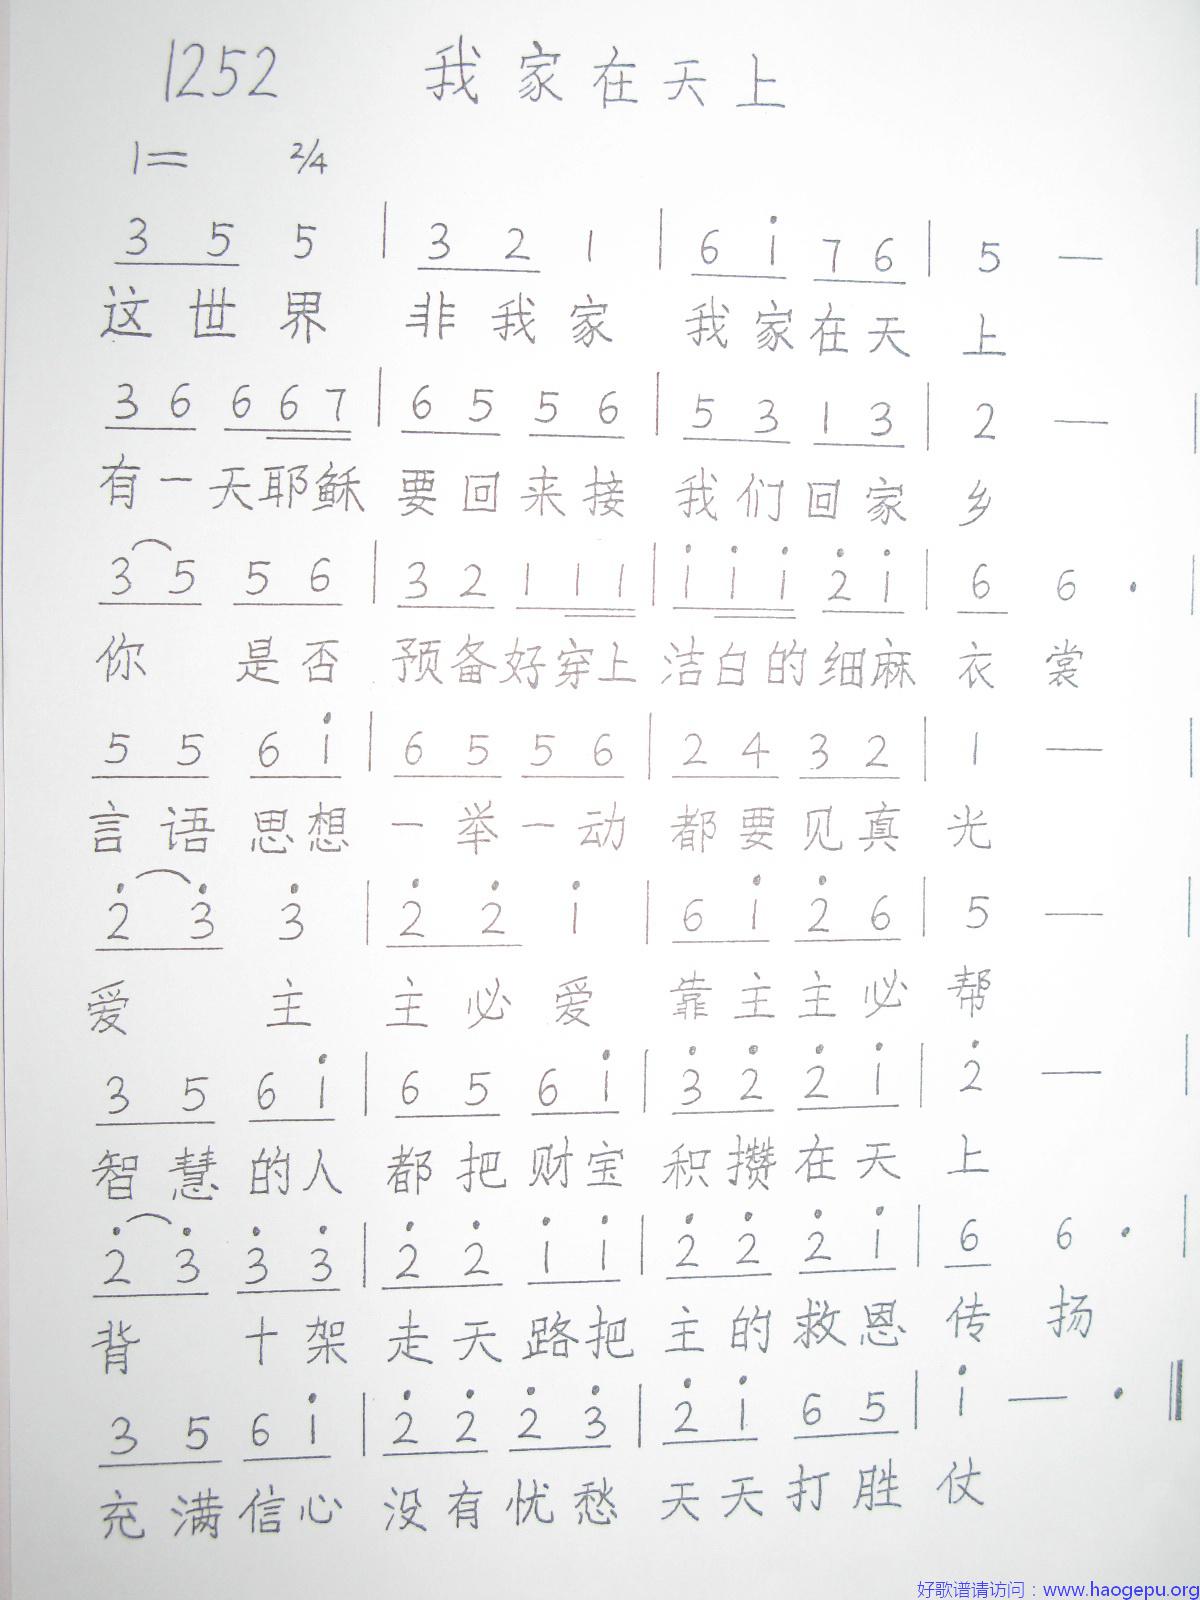 1252 我家在天上
1= 2/4
3 5 5 | 3 2 1 | 6 i̇ 7 6 | 5 — |
这世界 非我家 我家在天上
3 6 6 6 7 | 6 5 5 6 | 5 3 1 3 | 2 — |
有一天耶稣 要回来接 我们回家乡
3 5 5 6 | 3 2 1 1 1 | i̇ i̇ i̇ 2̇ i̇ | 6 6 · |
你 是否 预备好穿上 洁白的细麻 衣裳
5 5 6 i̇ | 6 5 5 6 | 2 4 3 2 | 1 — |
言语思想 一举一动 都要见真光
2̇ 3̇ 3̇ | 2̇ 2̇ i̇ | 6 i̇ 2̇ 6 | 5 — |
爱 主 主必爱 靠主主必帮
3 5 6 i̇ | 6 5 6 i̇ | 3̇ 2̇ 2̇ i̇ | 2̇ — |
智慧的人 都把财宝 积攒在天上
2̇ 3̇ 3̇ 3̇ | 2̇ 2̇ i̇ i̇ | 2̇ 2̇ 2̇ i̇ | 6 6 · |
背 十架 走天路把 主的救恩 传扬
3 5 6 i̇ | 2̇ 2̇ 2̇ 3̇ | 2̇ i̇ 6 5 | i̇ — · ‖
充满信心 没有忧愁 天天打胜仗
好歌谱请访问：www.haogepu.org